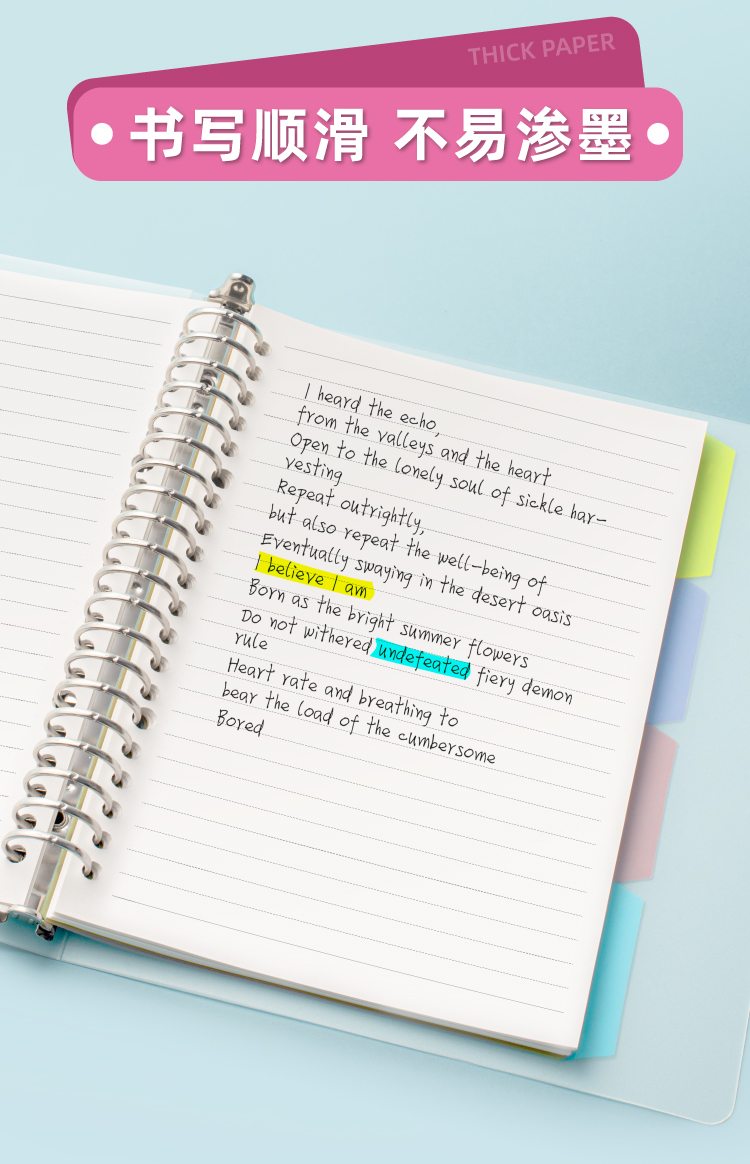 THICK PAPER
书写顺滑 不易渗墨
I heard the echo,
from the valleys and the heart
Open to the lonely soul of sickle har-
vesting
Repeat outrightly,
but also repeat the well-being of
Eventually swaying in the desert oasis
I believe I am
Born as the bright summer flowers
Do not withered undefeated fiery demon
rule
Heart rate and breathing to
bear the load of the cumbersome
Bored